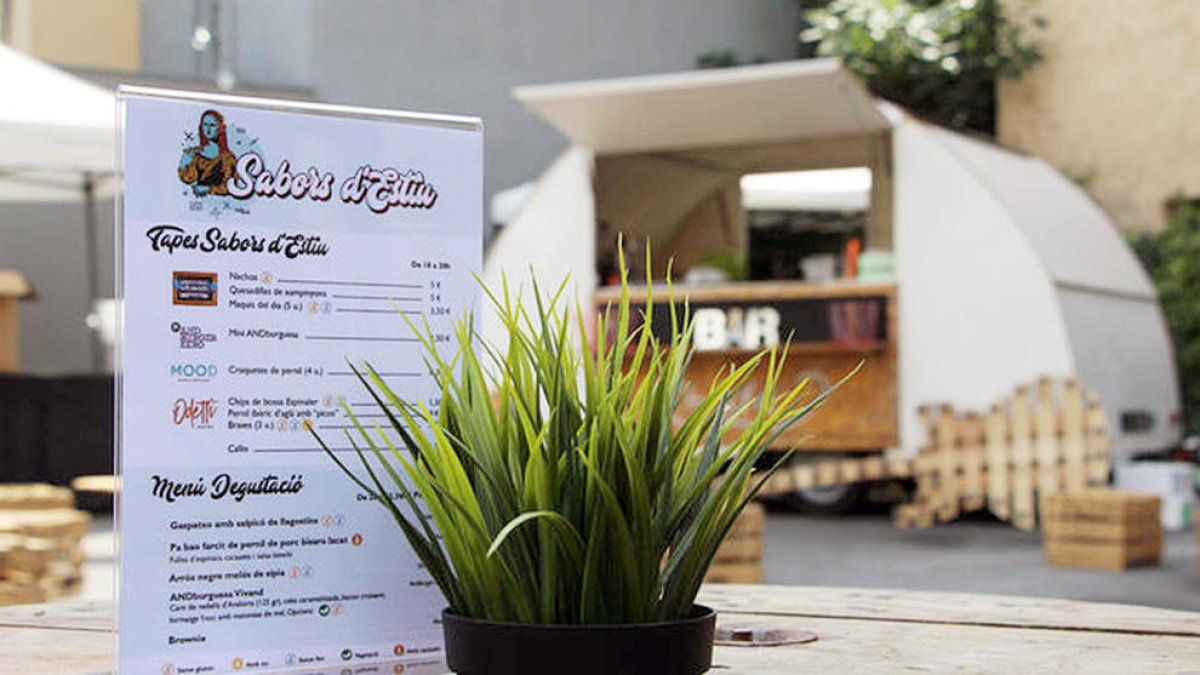 Sabors d'Estiu
Tapes Sabors d'Estiu
De 18 a 20h
Nachos
5 €
Quesadillas de xampinyons
5 €
Maques del dia (5 u.)
3,50 €
AND
BURGUER
Mini ANDburguesa
,50 €
MOOD
Croquetes de pernil (4 u.)
Odetti
Chips de bossa Espinaler
Pernil ibèric d'aglà amb "picos"
Braves (2 u.)
Callos
Menú Degustació
Gaspatxo amb salpicó de llagostins
Pa bao farcit de pernil de porc bisaro lacat
Arròs negre melós de sípia
ANDburguesa Vivand
Carn de vedella d'Andorra (125 gr), ceba caramel·litzada, bacon cruixent,
formatge fresc amb maionesa de mel. Opcions:
Brownie
Sense gluten
BAR